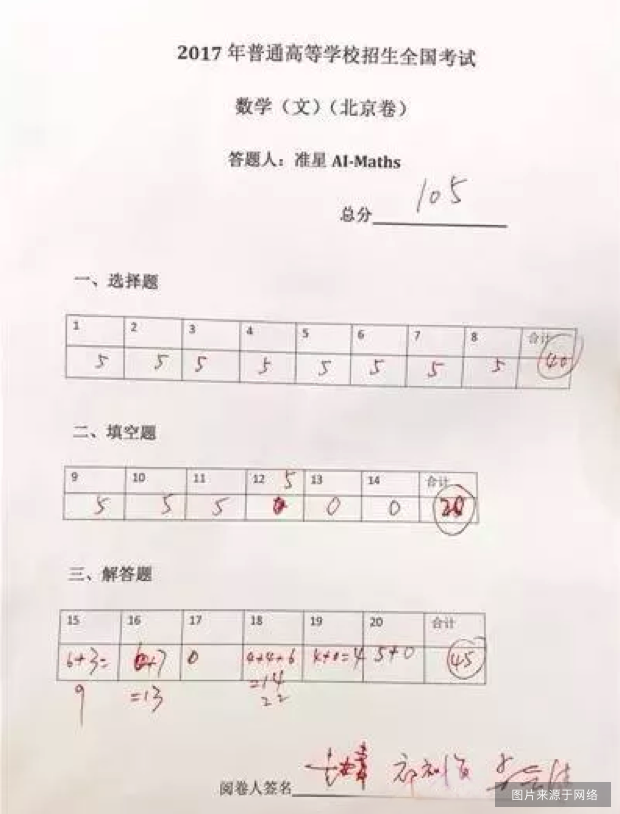 2017 年普通高等学校招生全国考试
数学（文）（北京卷）
答题人：准星 AI-Maths
总分 105
一、选择题
1 2 3 4 5 6 7 8 合计
5 5 5 5 5 5 5 5 40
二、填空题
9 10 11 12 5 13 14 合计
5 5 5 0 0 20
三、解答题
15 16 17 18 19 20 合计
6+3= 6+7 0 4+4+6 4+0=4 5+0 45
9 =13 =14
22
阅卷人签名
图片来源于网络